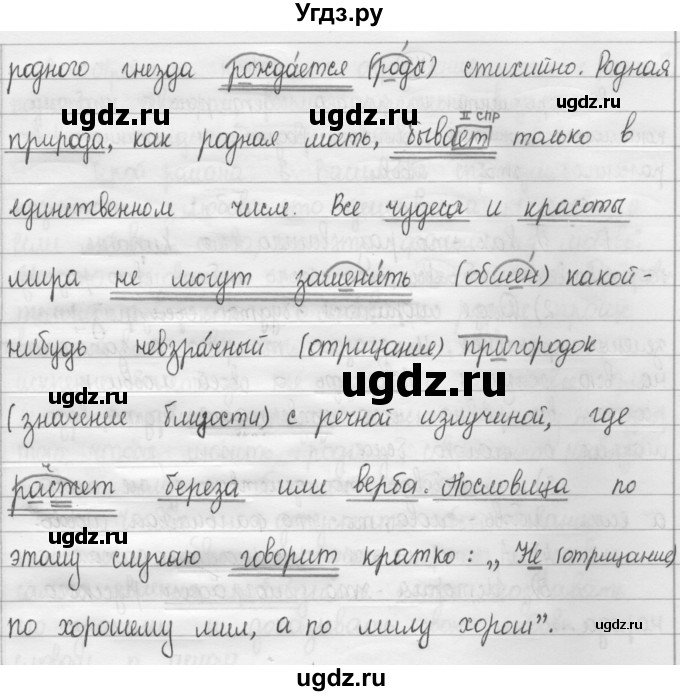 Угдз.ру
родного гнезда рождáется (рóды) стихийно. Родная
II спр
природа, как родная мать, бывает только в
единственном числе. Все чудеса и красоты
мира не могут заменить (обмéн) какой-
нибудь невзрáчный (отрицание) пригородок
(значение близости) с речной излучиной, где
растет береза или верба. Пословица по
этому случаю говорит кратко: „Не (отрицание)
по хорошему мил, а по милу хорош”.
ugdz.ru
ugdz.ru
ugdz.ru
ugdz.ru
ugdz.ru
ugdz.ru
ugdz.ru
ugdz.ru
ugdz.ru
ugdz.ru